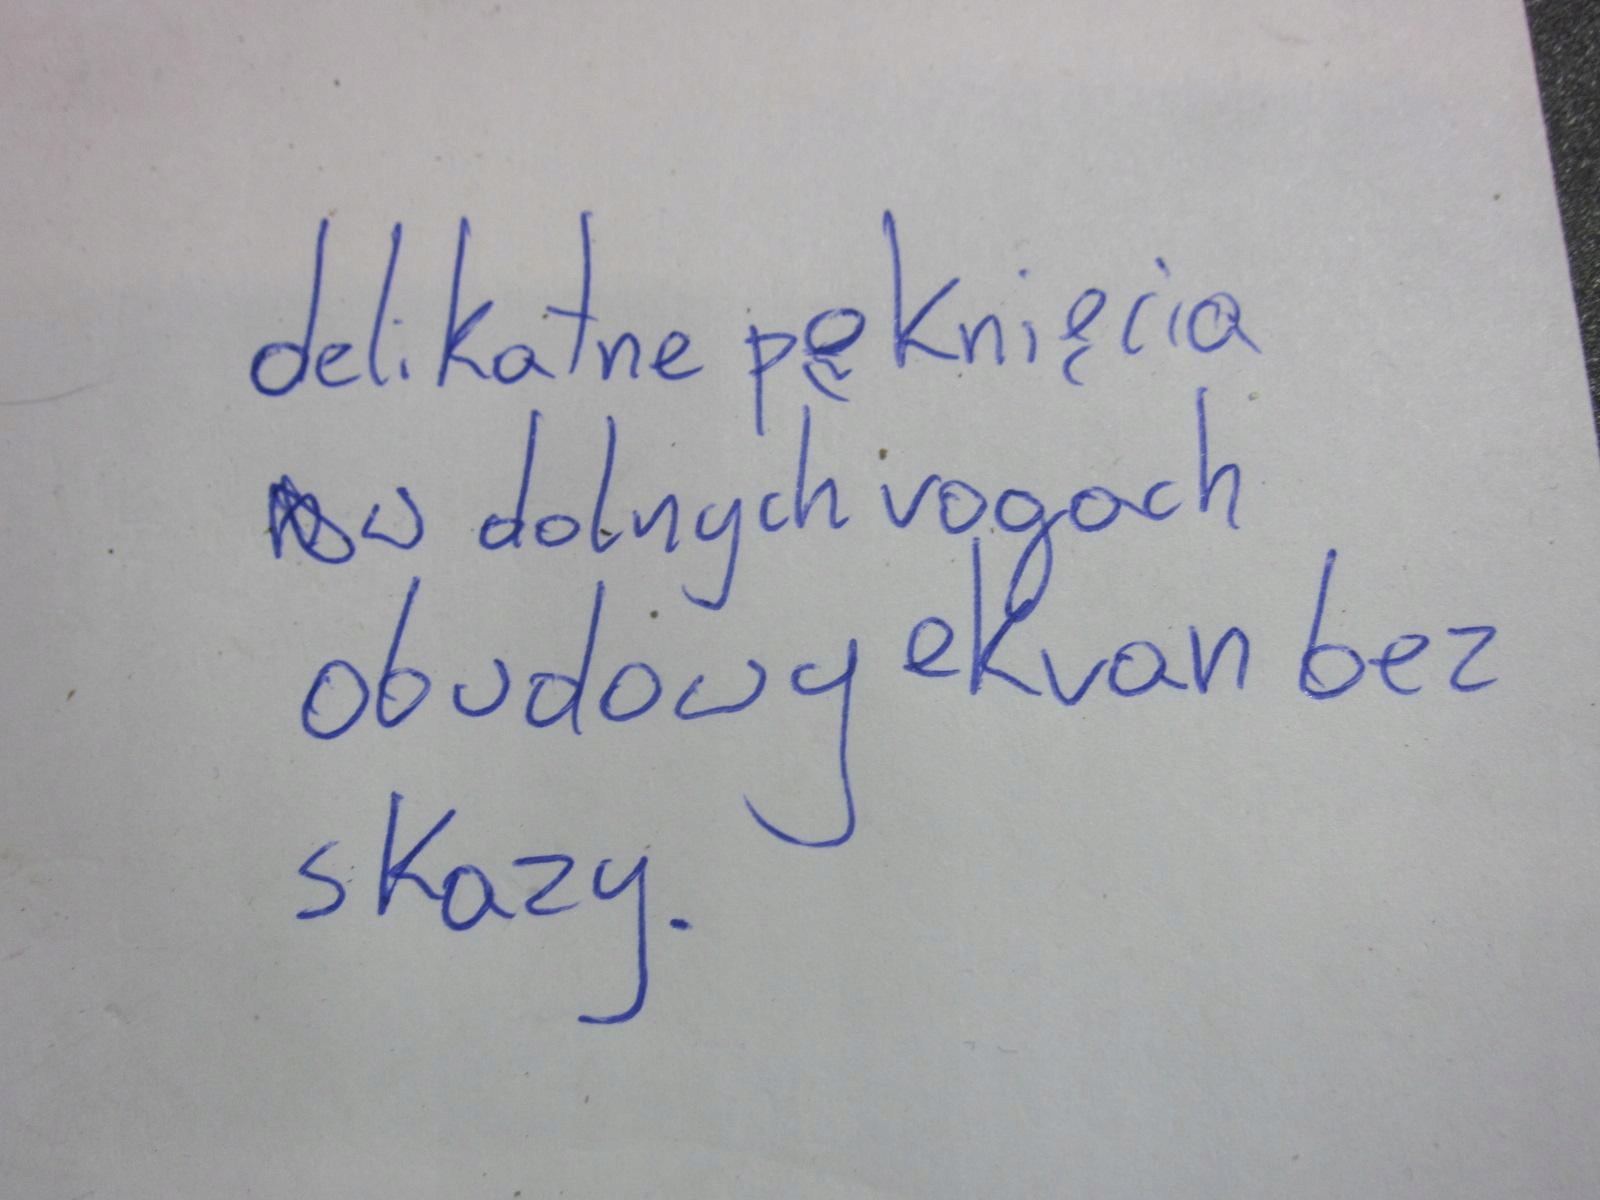 delikatne pęknięcia
w dolnych rogach
obudowy ekran bez
skazy.